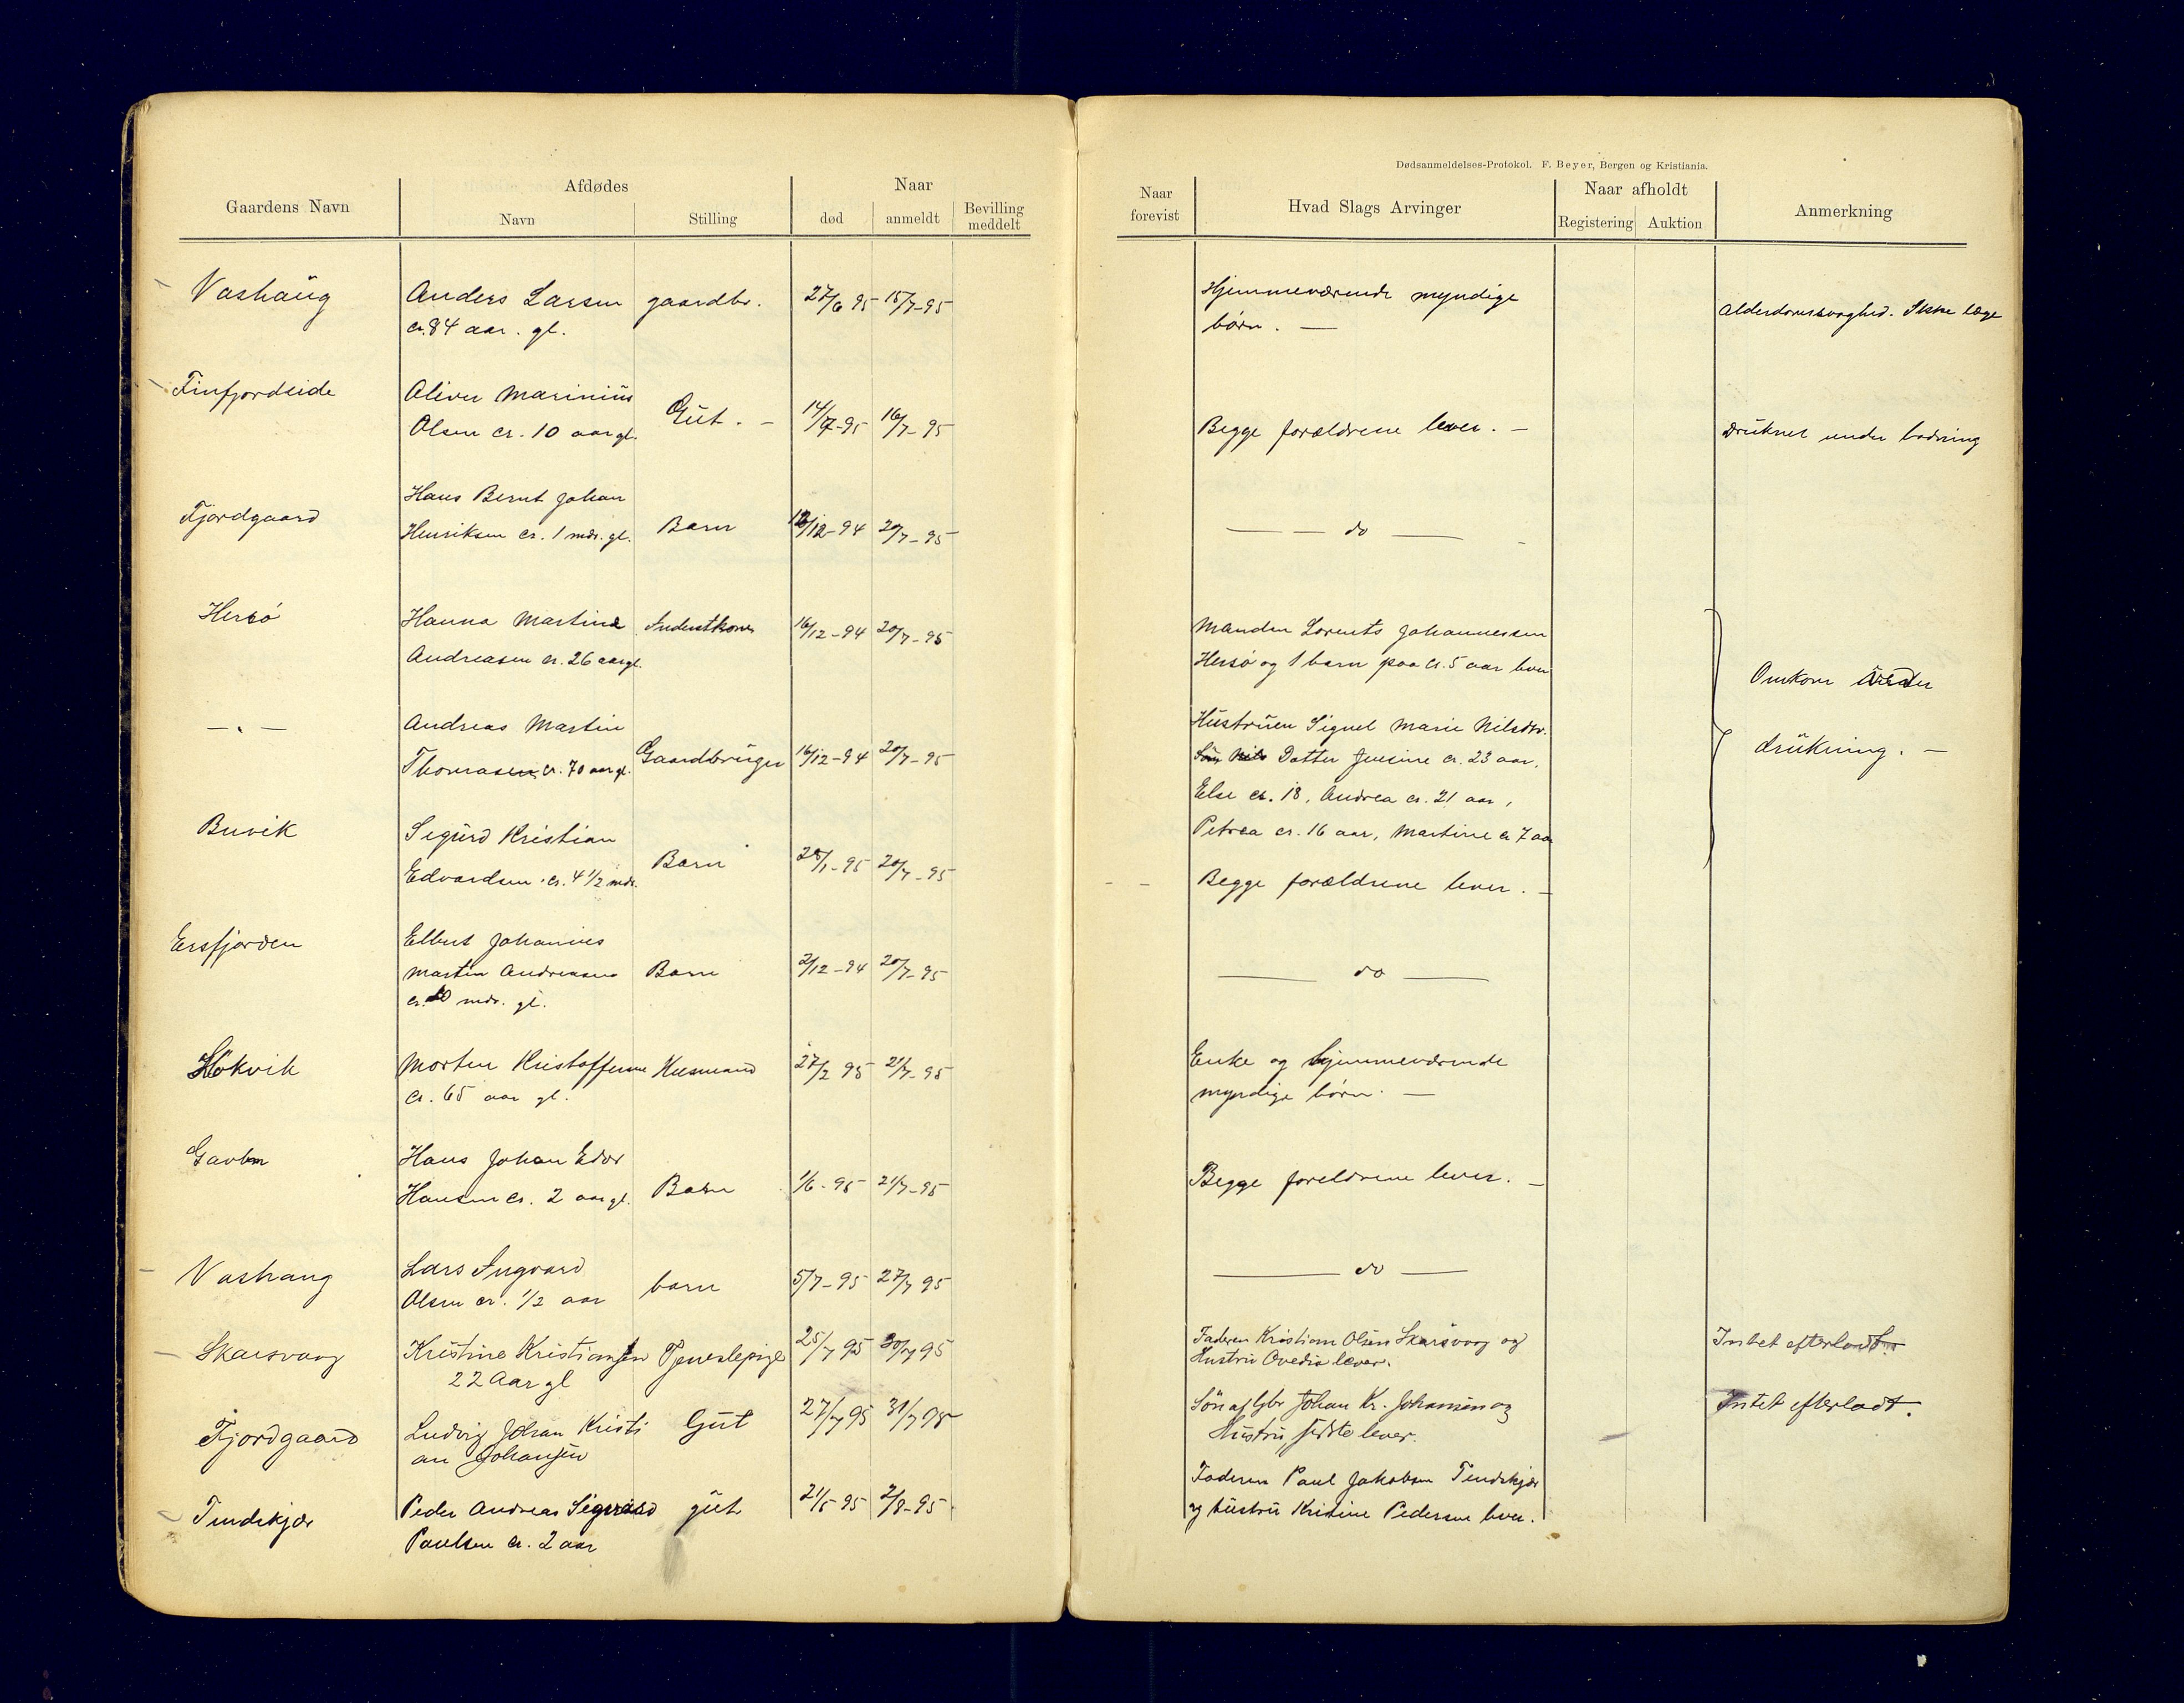 Gaardens Navn
Afdødes
Navn
Stilling
Naar
død
anmeldt
Bevilling
meddelt
Vashaug
Anders Larsen
cr. 84 aar. gl.
gaardbr.
27/6 95
15/7-95
Finfjordeide
Oliver Marinius
Olsen cr. 10 aar gl.
Gut. -
14/7-95
16/7-95
Fjordgaard
Hans Bernt Johan
Henriksen cr. 1 mdr. gl.
Barn
/12-94
20/7-95
Hersö
Hanna Martine
Andreasen cr. 26 aar gl.
Inderstkone
16/12-94
20/7-95
- " -
Andreas Martin
Thomasen cr. 70 aar gl.
Gaardbruger
16/12-94
20/7-95
Buvik
Sigurd Kristian
Edvardsen. cr. 4 1/2 mdr.
Barn
/1-95
20/7-95
Ersfjorden
Elbert Johannes
Martin Andreasen
cr. mdr. gl.
Barn
2/12-94
20/7-95
Hokvik
Morten Kristoffersen
cr. 65 aar gl.
Husmand
27/2 95
21/7-95
Hans Johan Edv
Hansen cr. 2 aar gl.
Barn
1/6-95
21/7-95
Vashaug
Lars Ingvard
Olsen cr. 1/2 aar
barn
5/7-95
27/7 95
Skarsvaag
Kristine Kristiansen
22 Aar gl
Tjenestepige
25/7 95
30/7 95
Fjordgaard
Ludvig Johan Kristi
an Johansen
Gut
27/7 95
31/7 95
Tindskjær
Peder Andreas Sigvard
Paulsen cr. 2 aar
gut
21/5 95
2/8-95.
Dødsanmeldelses-Protokol. F. Beyer, Bergen og Kristiania.
Naar
forevist
Hvad Slags Arvinger
Naar afholdt
Registering
Auktion
Anmerkning
Hjemmeværende myndige
börn. -
Alderdomssvaghed. Ikke læge
Begge forældrene lever. -
Druknet under badning
- - do -
Manden Lorents Johannessen
Hersö og 1 barn paa cr. 5 aar lever
Omkom under
drukning. -
Hustruen Signel Marie Nilsdtr.
Datter Jensine cr. 23 aar,
Else cr. 18, Andrea cr. 21 aar,
Petrea cr. 16 aar, Martine cr 7 aar
Begge forældrene lever. -
- do -
Enke og hjemmeværende
myndige börn. -
Begge foreldrene lever. -
- do -
Faderen Kristian Olsen Skarsvaag og
Hustru Ovedia lever.
Intet efterladt.
Sön af Gbr Johan Kr. Johansen og
Hustru, sidste lever.
Intet efterladt.
Faderen Paul Jakobsen Tindskjær
og hustru Kristine Pedersen lever.